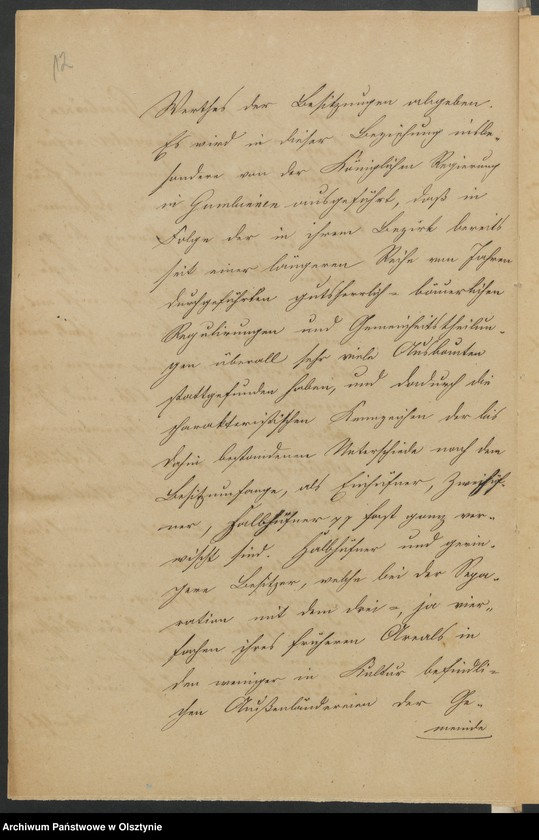 12
Werthes der Besitzungen abgeben.
Es wird in dieser Beziehung insbe-
sondere von der Königlichen Regierung
in Gumbinnen ausgeführt, daß in
Folge der in ihrem Bezirk bereits
seit einer längeren Reihe von Jahren
durchgeführten gutsherrlich-bäuerlichen
Regulirungen und Gemeinheitstheilun-
gen überall sehr viele Ausbauten
stattgefunden haben, und dadurch die
charakteristischen Kennzeichen der bis
dahin bestandenen Unterschiede nach dem
Besitzumfange, als Einhüfner, Zweihüf-
ner, Halbhüfner pp fast ganz ver-
wischt sind. Halbhüfner und gerin-
gere Besitzer, welche bei der Sepa-
ration mit dem drei-, ja vier-
fachen ihres früheren Areals in
den weniger in Kultur befindli-
chen Außenländereien der Ge-
meinde
Archiwum Państwowe w Olsztynie